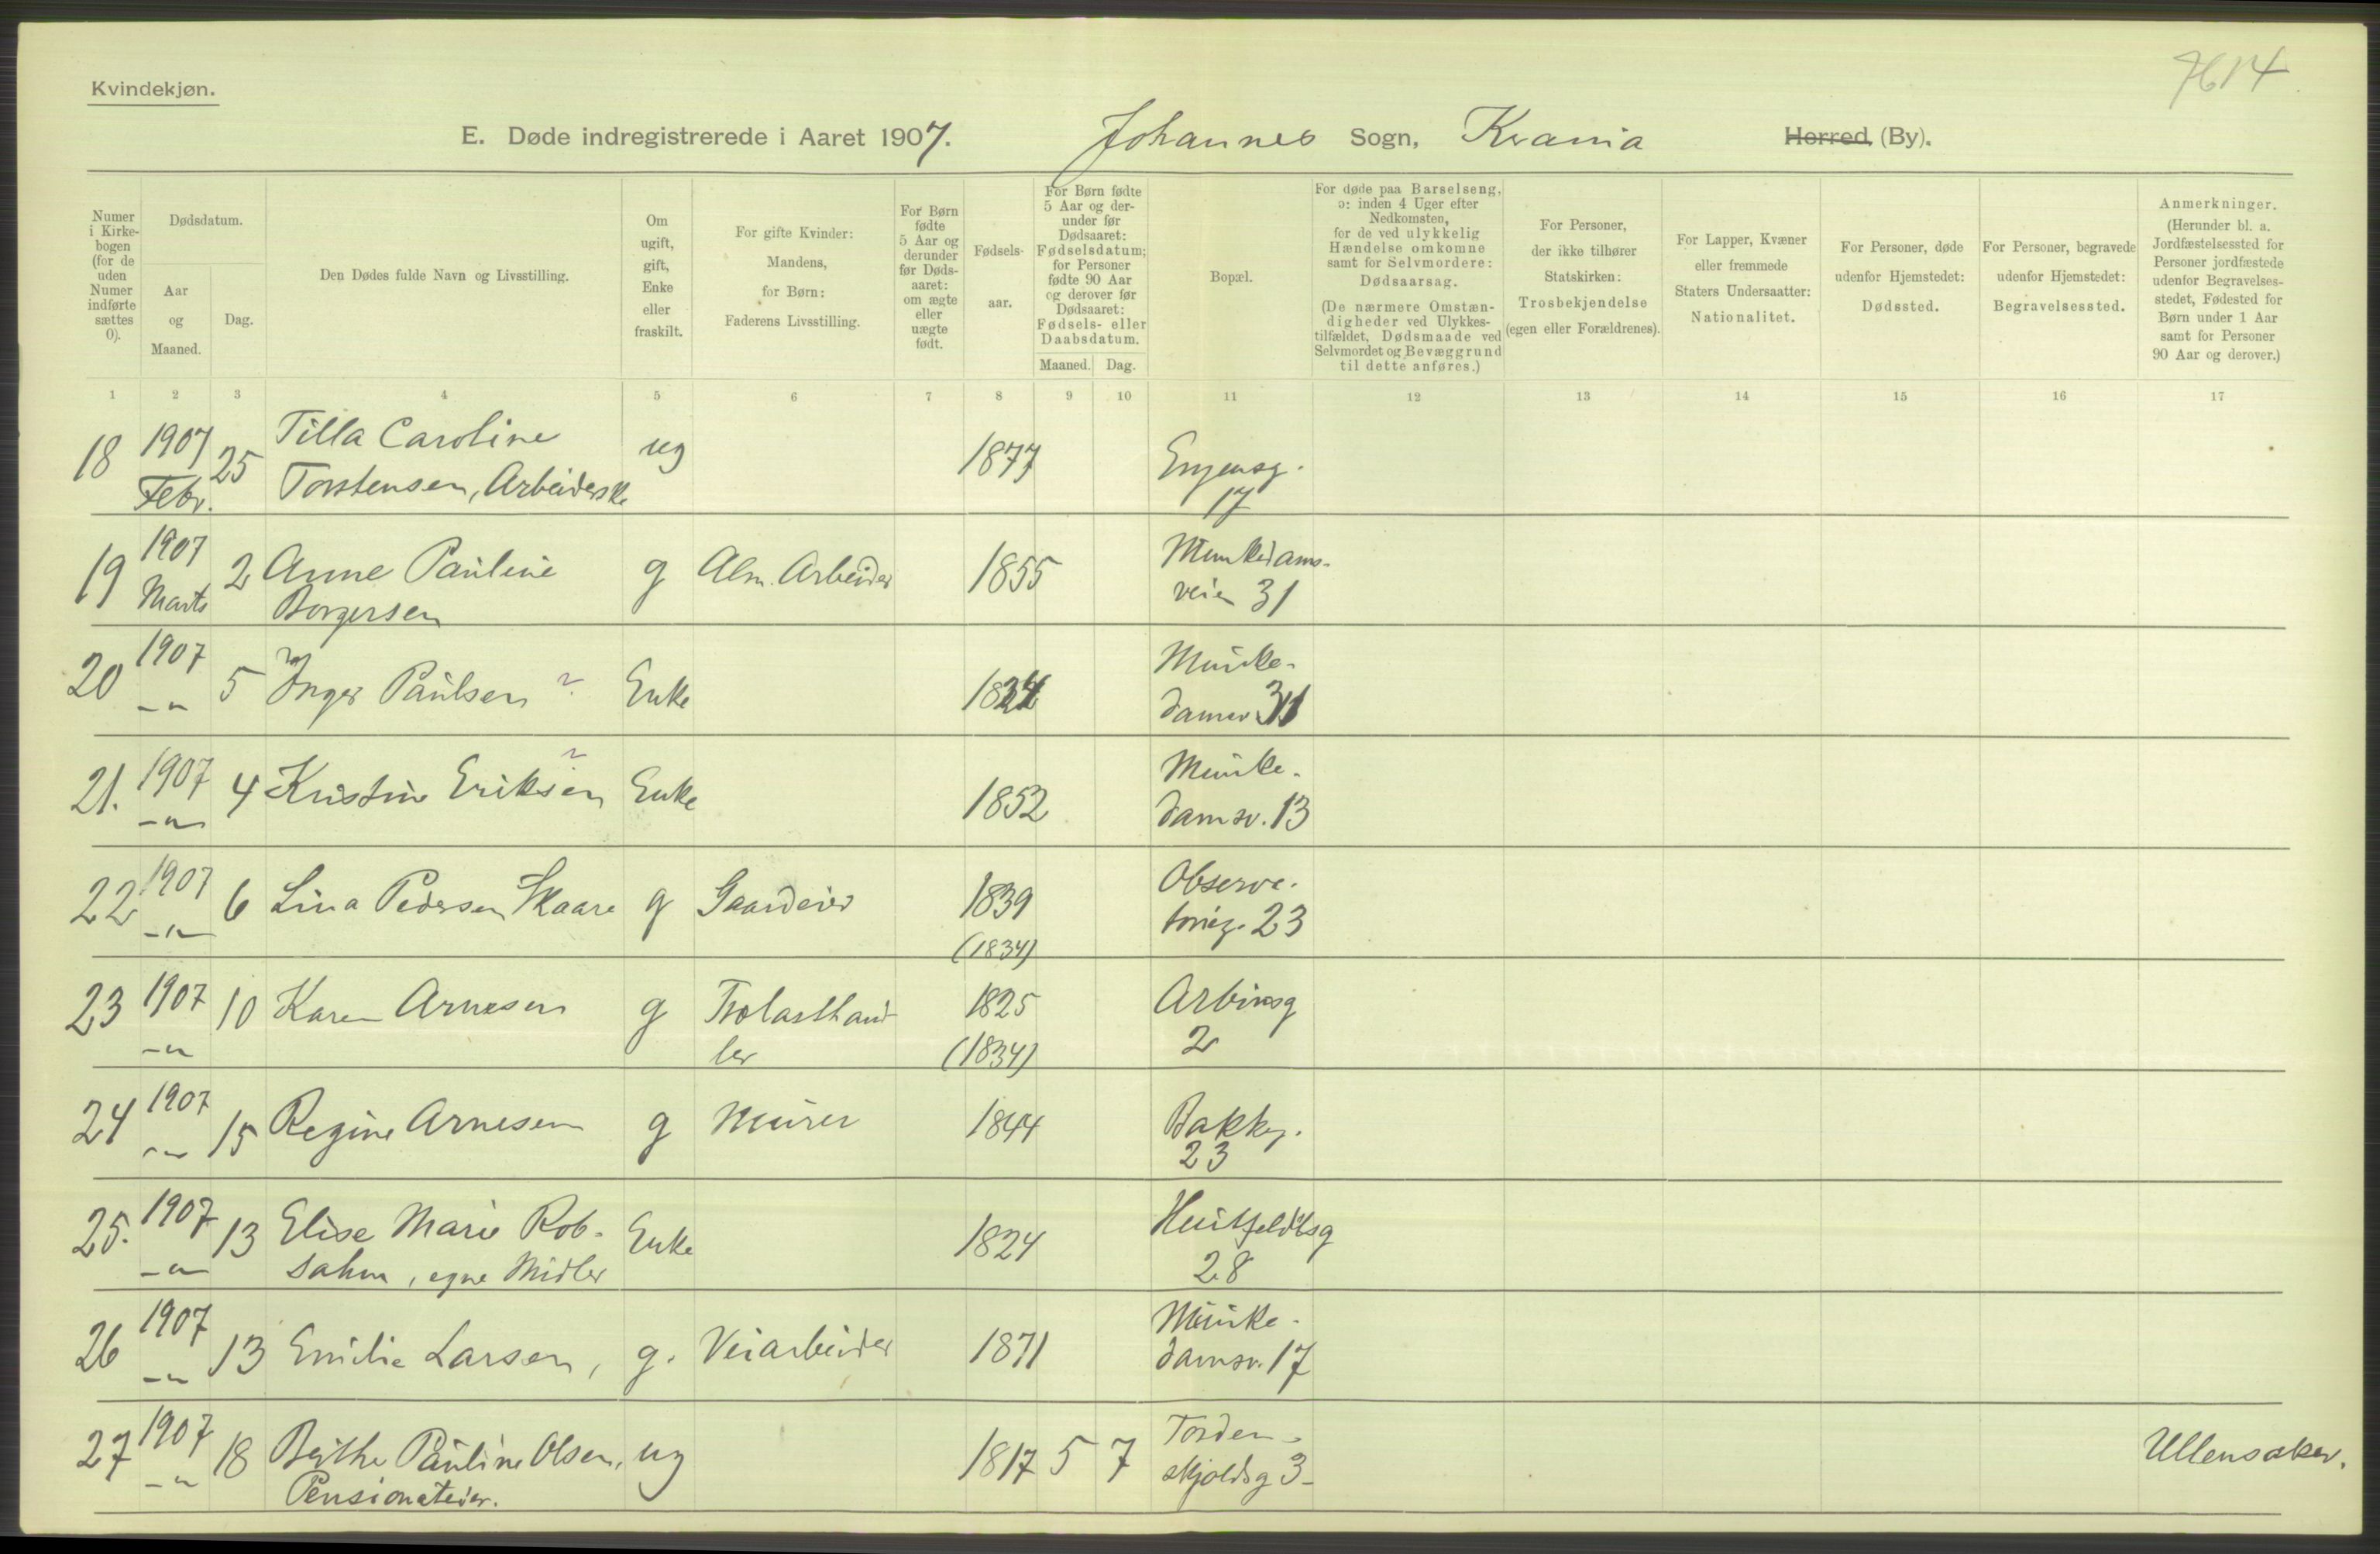 7614
Kvindekjøn.
E. Døde indregistrerede i Aaret 1907. Johannes Sogn, Krania Herred, (By).
Numer i Kirkebogen (for de uden Numer indførte sættes 0).
Dødsdatum.
Aar og Maaned.
Dag.
Den Dødes fulde Navn og Livsstilling.
Om ugift, gift, Enke eller fraskilt.
For gifte Kvinder: Mandens, for Børn: Faderens Livsstilling.
For Børn fødte 5 Aar og derunder før Dødsaaret: om ægte eller uægte født.
Fødselsaar.
For Børn fødte 5 Aar og derunder før Dødsaaret: Fødselsdatum; for Personer fødte 90 Aar og derover før Dødsaaret: Fødsels- eller Daabsdatum.
Maaned. Dag.
Bopæl.
For døde paa Barselseng, ɔ: inden 4 Uger efter Nedkomsten, for de ved ulykkelig Hændelse omkomne samt for Selvmordere: Dødsaarsag.
(De nærmere Omstændigheder ved Ulykkestilfældet, Dødsmaade ved Selvmordet og Bevæggrund til dette anføres.)
For Personer, der ikke tilhører Statskirken: Trosbekjendelse (egen eller Forældrenes).
For Lapper, Kvæner eller fremmede Staters Undersaatter: Nationalitet.
For Personer, døde udenfor Hjemstedet: Dødssted.
For Personer, begravede udenfor Hjemstedet: Begravelsessted.
Anmerkninger.
(Herunder bl. a. Jordfæstelsessted for Personer jordfæstede udenfor Begravelsesstedet, Fødested for Børn under 1 Aar samt for Personer 90 Aar og derover.)
1 2 3 4 5 6 7 8 9 10 11 12 13 14 15 16 17
18 1907 25 Tilla Caroline ug 1877
Febr. Torstensen, Arbeiderske 17
19 1907 2 Anne Pauline g Alm. Arbeider 1855 Munkedams-
Marts Borgersen veien 31
20 1907 5 Inger Paulsen ? Enke Munke-
-"- damsv 31
21. 1907 4 Kristine Eriksen ? Enke 1852 Munke-
-"- damsv. 13
22 1907 6 Lina Pedersen Skaare g Gaardeier 1839 Observa-
-"- (1834) torieg. 23
23 1907 10 Karen Arnesen g Trælasthand- 1825 Arbinsg
-"- ler (1834) 2
24 1907 15 Regine Arnesen g Murer 1844 Bakkeg.
-"- 23
25. 1907 13 Elise Marie Rob- Enke 1824 Huitfeldtsg
-"- sahm, egne Midler 28
26 1907 13 Emilie Larsen, g. Veiarbeider 1871 Munke-
-"- damsv. 17
27 1907 18 Berthe Pauline Olsen, ug 1817 5 7 Torden- Ullensaker.
-"- Pensionateier. skjoldsg 3-